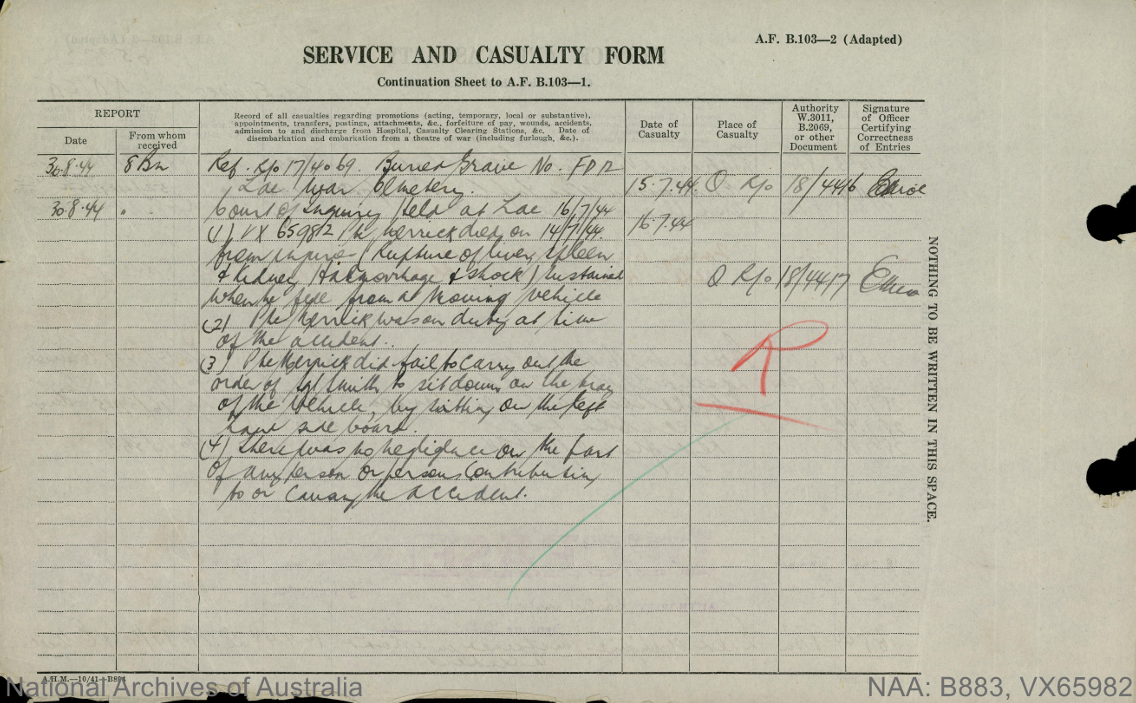 A.F. B.103—2 (Adapted)
SERVICE AND CASUALTY FORM
Continuation Sheet to A.F. B.103—1.
REPORT
Date
From whom
received
Record of all casualties regarding promotions (acting, temporary, local or substantive),
appointments, transfers, postings, attachments, &c., forfeiture of pay, wounds, accidents,
admission to and discharge from Hospital, Casualty Clearing Stations, &c. Date of
disembarkation and embarkation from a theatre of war (including furlough, &c.).
Date of
Casualty
Place of
Casualty
Authority
W.3011,
B.2069,
or other
Document
Signature
of Officer
Certifying
Correctness
of Entries
30.8.44 8 Bn Ref. R/o 17/4069. Buried Grave No. FD12
Lae War Cemetery. 15.7.44. Q R/o 18/4416
30.8.44 " Court of Inquiry held at Lae 16/7/44
(1) VX 65982 Pte Kerrick died on 14/7/44 16.7.44
from injuries (Rupture of liver, spleen
& kidney, Haemorrhage & shock) sustained Q R/o 18/4417
when he fell from a moving vehicle
(2) Pte Kerrick was on duty at time
of the accident.
(3) Pte Kerrick did fail to carry out the
order of Sgt Smith to sit down on the tray
of the vehicle, by sitting on the left
hand side board.
(4) There was no negligence on the part
of any person or persons contributing
to or causing the accident.
R
NOTHING TO BE WRITTEN IN THIS SPACE.
A.H.M.—10/41—B894
National Archives of Australia
NAA: B883, VX65982